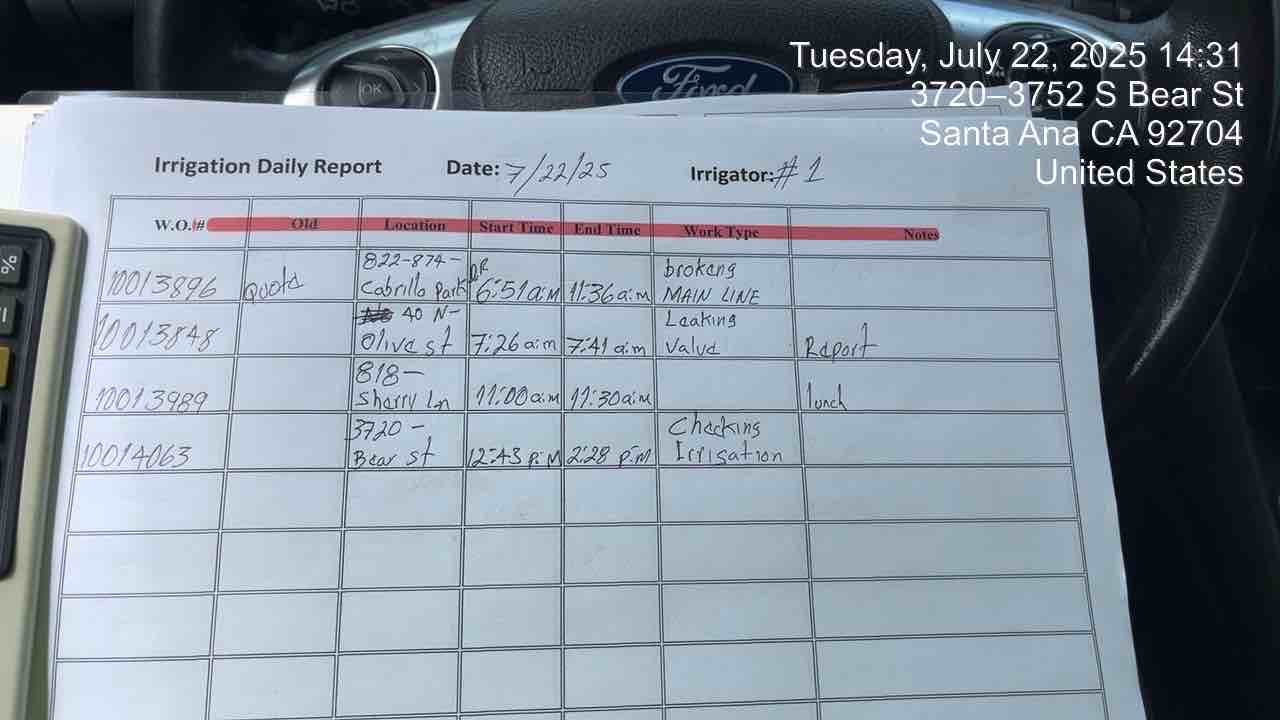 Tuesday, July 22, 2025 14:31
3720–3752 S Bear St
Santa Ana CA 92704
United States
OK
Ford
Irrigation Daily Report Date: 7/22/25 Irrigator: #1
W.O.# Old Location Start Time End Time Work Type Notes
822-874- DR brokeng
10013896 quote Cabrillo Park 6:51 a:m 11:36 a:m MAIN LINE
40 N- Leaking
10013848 Olive st 7:26 a:m 7:41 a:m Valve Report
818-
10013989 Sherry Ln 11:00 a:m 11:30 a:m lunch
3720- Checking
10014063 Bear st 12:43 P:M 2:28 P:M Irrisation
%